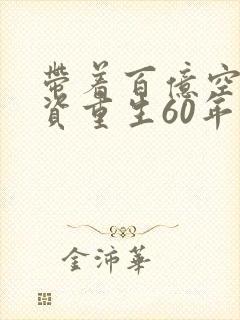 帶着百億空
資重生60年
金沛華